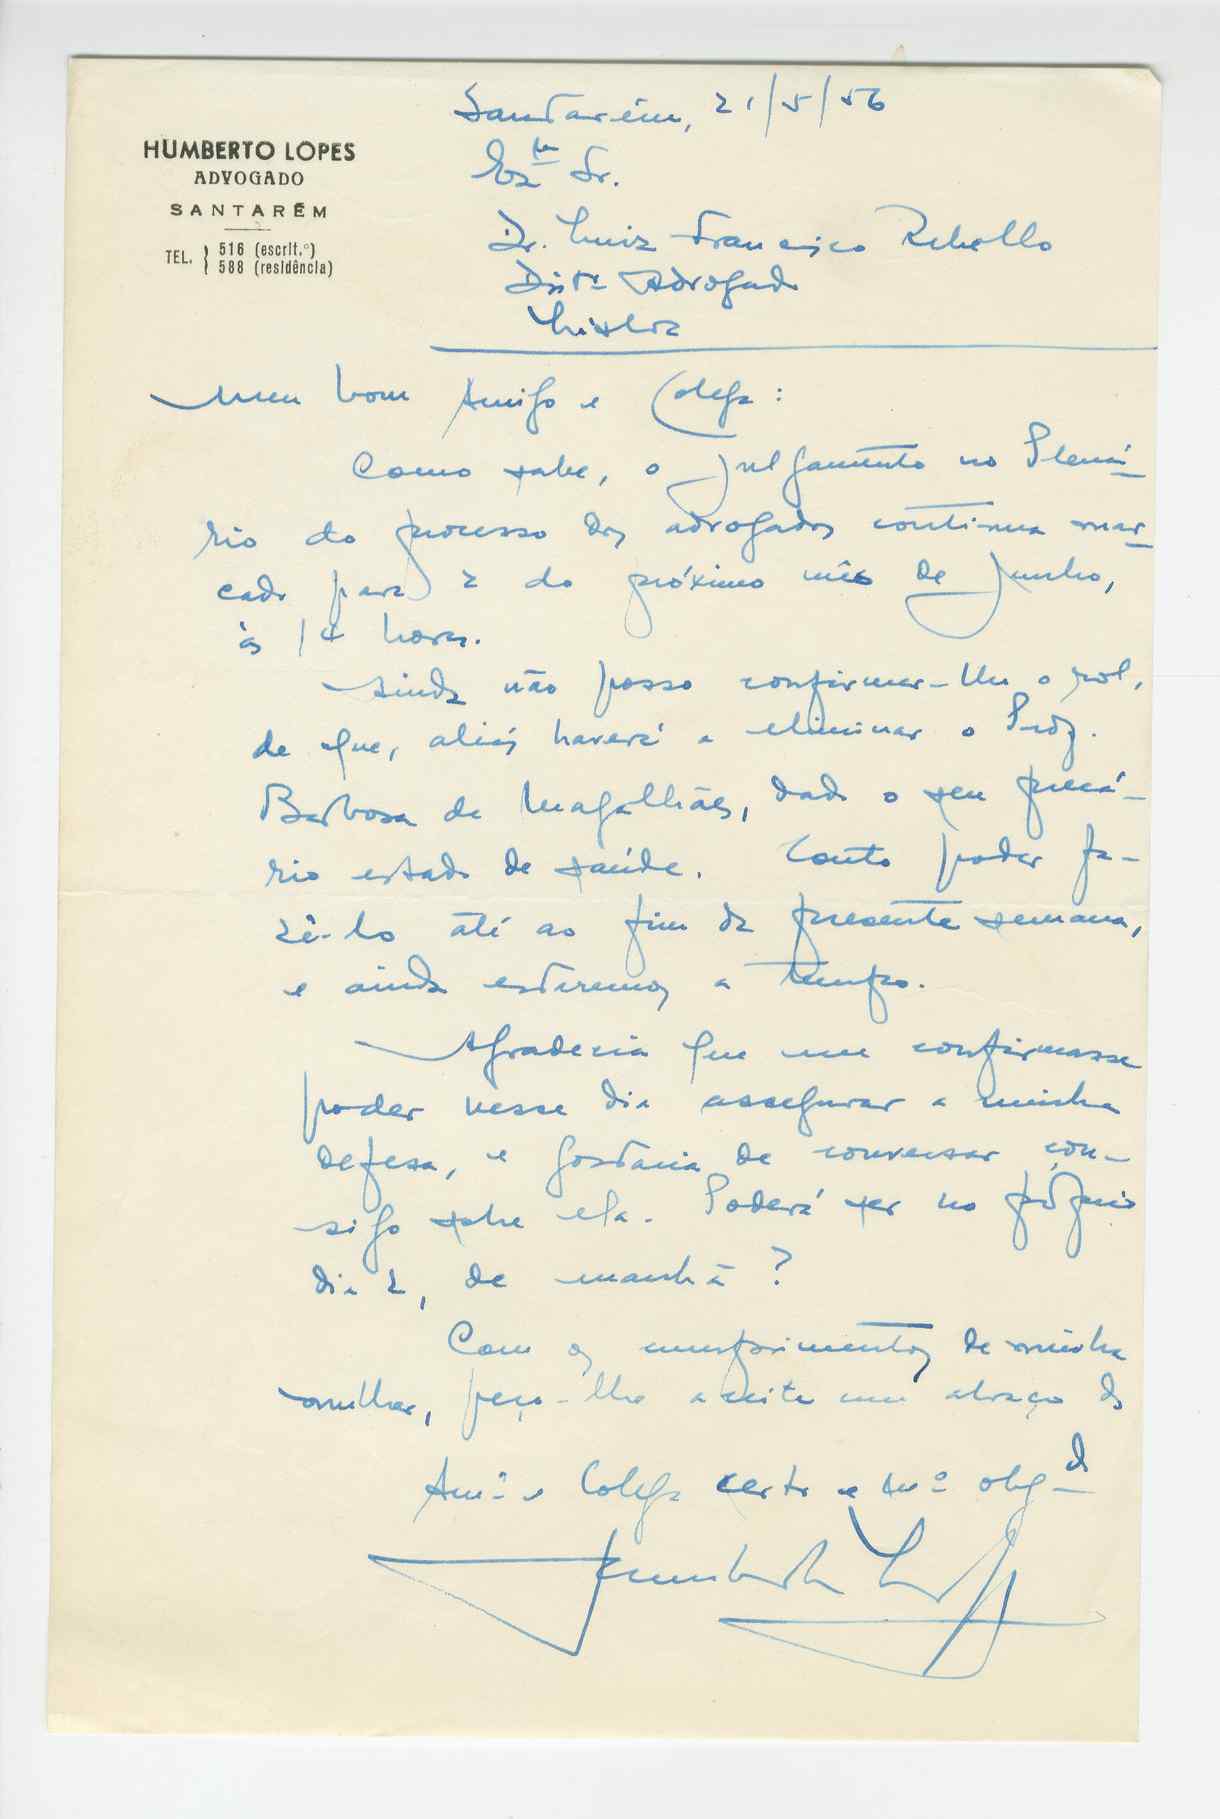 Santarém, 21/5/56
HUMBERTO LOPES
ADVOGADO
SANTARÉM
TEL. } 516 (escrit.º)
588 (residência)
Ex.mo Sr.
Dr. Luiz Francisco Rebello
Distº Advogado
Lisboa
Meu bom Amigo e Colega:
Como sabe, o julgamento no Plená-
rio do processo dos advogados continua mar-
cado para 2 do próximo mês de Junho,
às 14 horas.
Ainda não posso confirmar-lhe o rol,
de que, aliás haverá a eliminar o Prof.
Barbosa de Magalhães, dado o seu precá-
rio estado de saúde. Conto poder fa-
zê-lo até ao fim da presente semana,
e ainda estaremos a tempo.
Agradecia que me confirmasse
poder nesse dia assegurar a minha
defesa, e gostaria de conversar con-
sigo sobre ela. Poderá ser no próprio
dia 2, de manhã?
Com os cumprimentos de minha
mulher, peço-lhe aceite um abraço do
Am.º e Colega certo e mº obg.do
Humberto Lopes